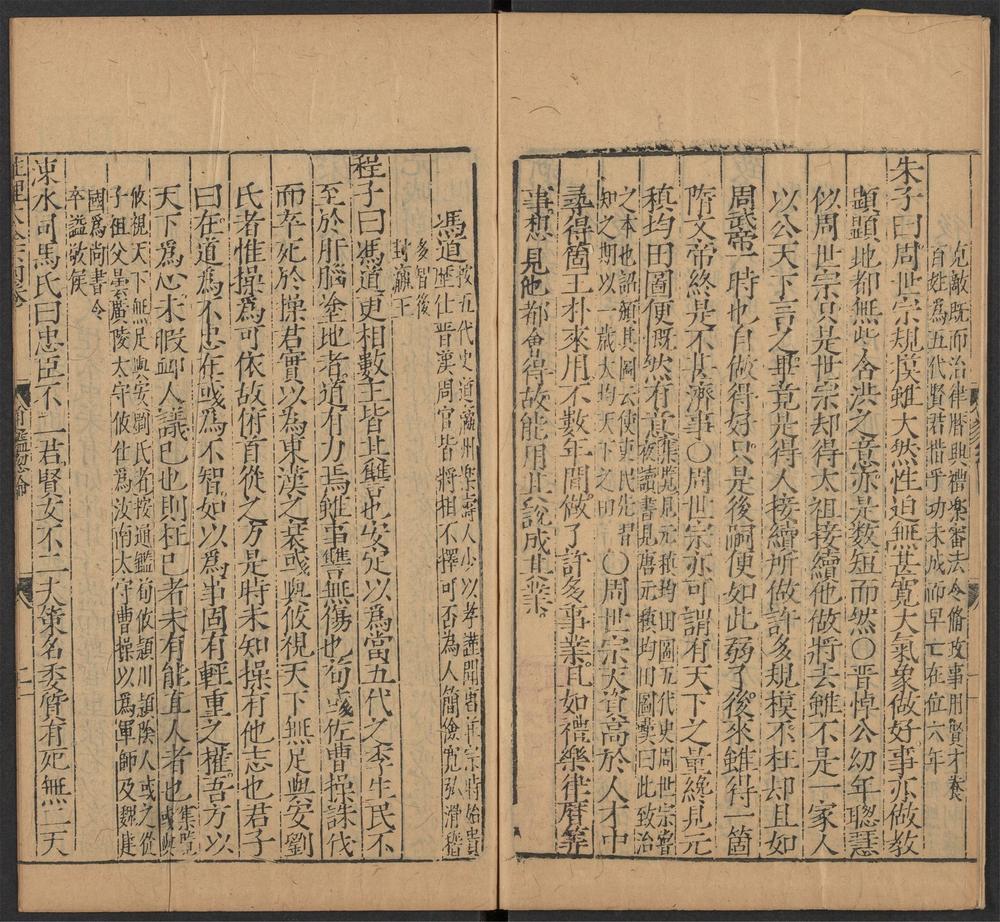 克敵既而治律曆興禮樂審法令脩政事用賢才養
百姓爲五代賢君惜乎功未成而早亡在位六年
朱子曰周世宗規模雖大然性迫無甚寛大氣象做好事亦做教
顯顯地都無些含洪之意亦是數短而然〇晋悼公幼年聰慧
似周世宗只是世宗却得太祖接續他做將去雖不是一家人
以公天下言之畢竟是得人接續所做許多規模不枉却且如
周武帝一時也自做得好只是後嗣便如此弱了後來雖得一箇
隋文帝終是不甚濟事〇周世宗亦可謂有天下之量纔見元
稹均田圖便既然有意
集覽見元稹均田圖五代史周世宗甞
夜讀書見唐元稹均田圖嘆曰此致治
之本也詔頒其圖云使吏民先習
知之期以一歲大均天下之田
〇周世宗天資高於人才中
尋得箇王朴來用不數年間做了許多事業且如禮樂律曆等
事想見他都會得故能用其說成其業
馮道
按五代史道瀛州樂壽人少以孝謹聞唐莊宗時始貴
歷仕晋漢周官皆將相不擇可否為人簡儉寛弘滑稽
多智後
封瀛王
程子曰馮道更相數主皆其讐也安定以爲當五代之季生民不
至於肝腦塗地者道有力焉雖事讐無傷也荀彧佐曹操誅伐
而卒死於操君實以為東漢之衰彧與攸視天下無足與安劉
氏者惟操爲可依故俯首從之方是時未知操有他志也君子
曰在道爲不忠在彧爲不智如以爲事固有輕重之權吾方以
天下爲心未暇䘏人議已也則枉已者未有能直人者也
集覽
彧與
攸視天下無足與安劉氏者按通鑑荀攸潁川潁陰人或之從
子祖父曇廣陵太守攸仕爲汝南太守曹操以爲軍師及魏建
國爲尚書令
卒謚敬侯
涑水司馬氏曰忠臣不二君賢女不二夫策名委質有死無二天